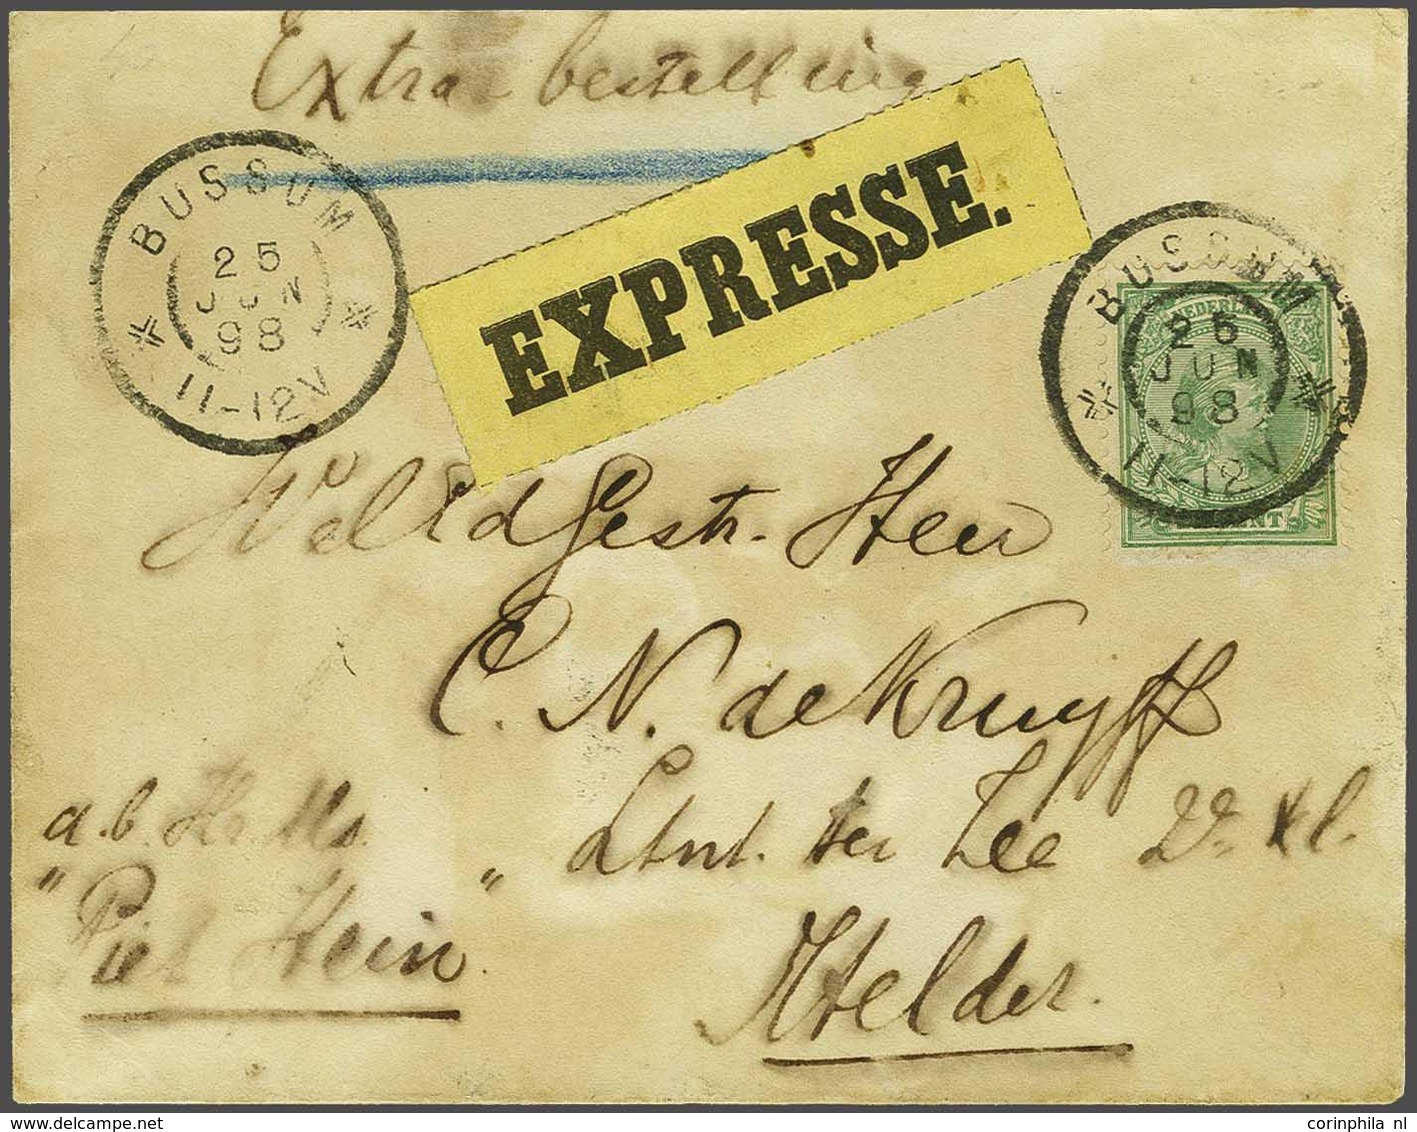 Extra bestelling
EXPRESSE.
BUSSUM
25
JUN
98
11-12V
BUSSUM
25
JUN
98
11-12V
NEDERL
CENT
WelEdGestr. Heer
C. N. de Kruyff
a.b. Hr Ms.
Ltnt. ter Zee 2e kl.
"Piet Hein"
Helder.
corinphila nl